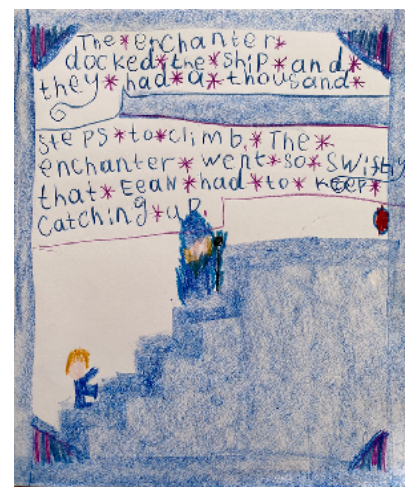 The*enchanter*
docked*the*ship*and*
they*had*a*thousand*
steps*to*climb.*The*
enchanter*went*so*swiftly
that*Eean*had*to*keep*
catching*up.